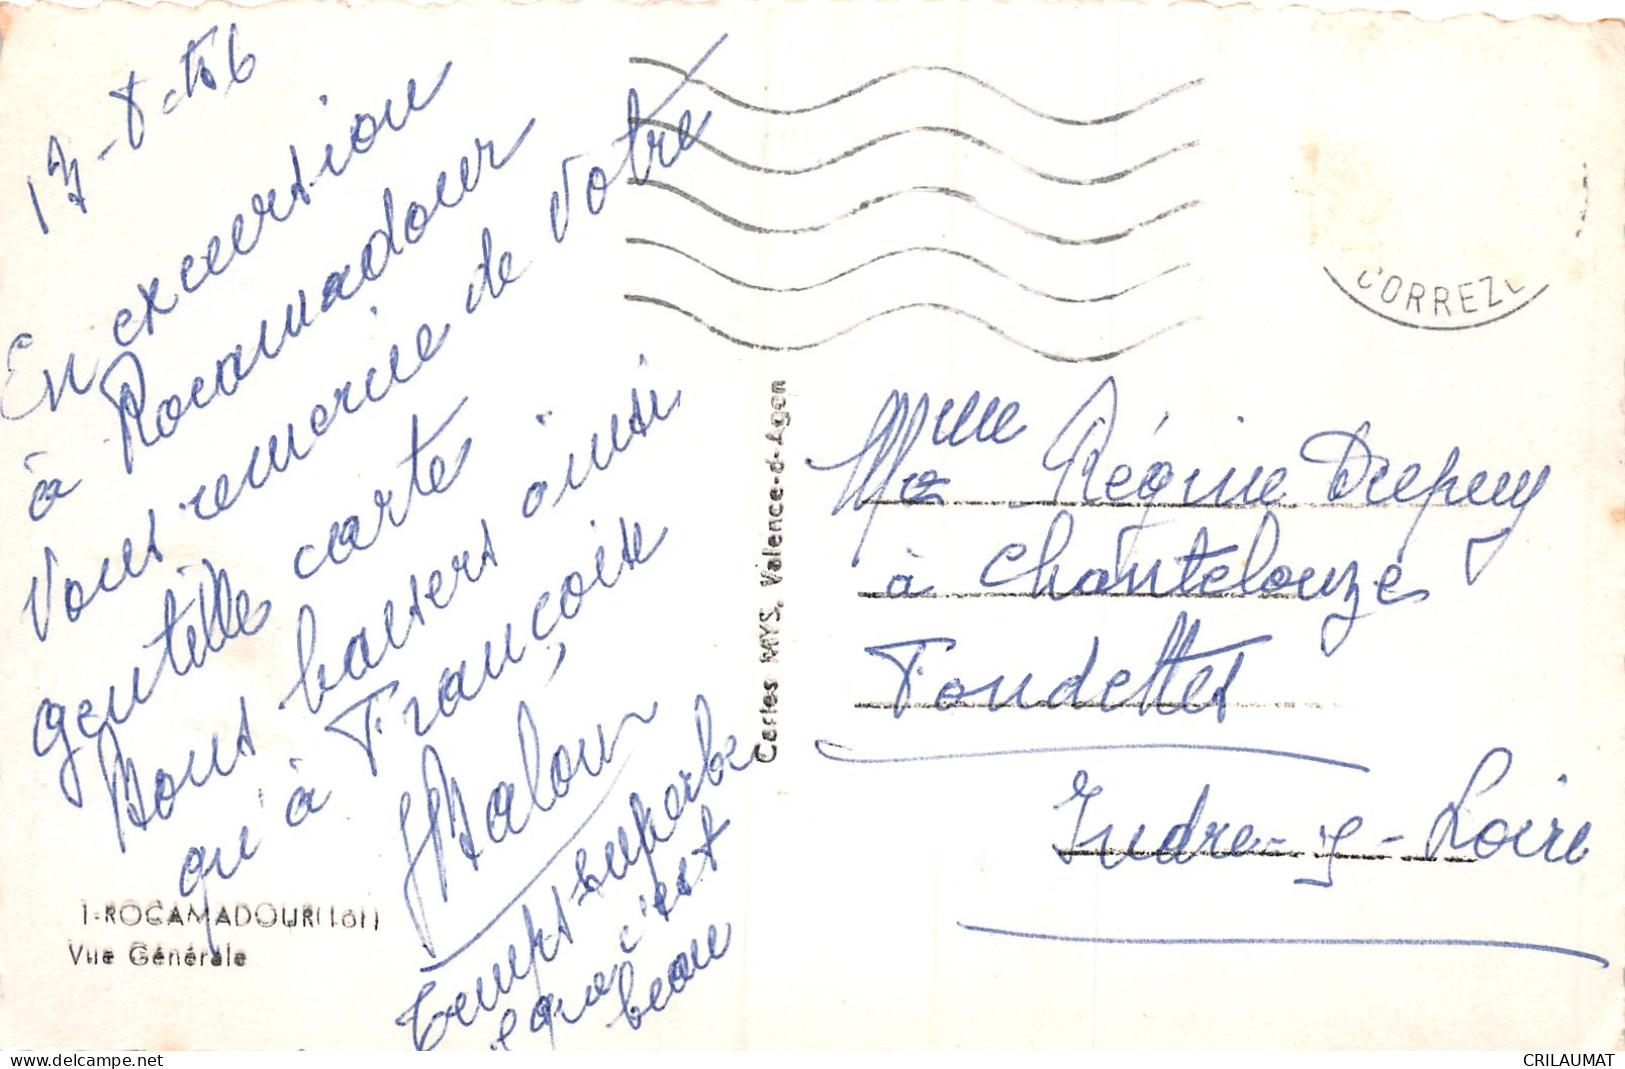 17-8-56
En excursion
à Rocamadour
Vous remercie de votre
gentille carte
Nous baisers ainsi
qu'à Françoise
Malour
Temps superbe
que c'est
beau
1-ROCAMADOUR (Lot)
Vue Générale
Cartes MYS, Valence-d-Agen
CORREZE
Mme Régine Dupuy
à Chantelouze
Fondettes
Indre-y-Loire
delcampe.net
CRILAUMAT